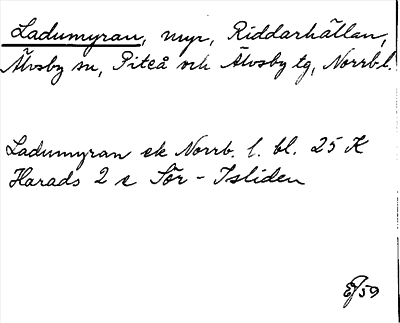 Ladumyran, myr, Riddarhällan,
Älvsby sn, Piteå och Älvsby tg, Norrb.l.
Ladumyran ek Norrb. l. bl. 25 K
Harads 2 s Sör-Isliden
59